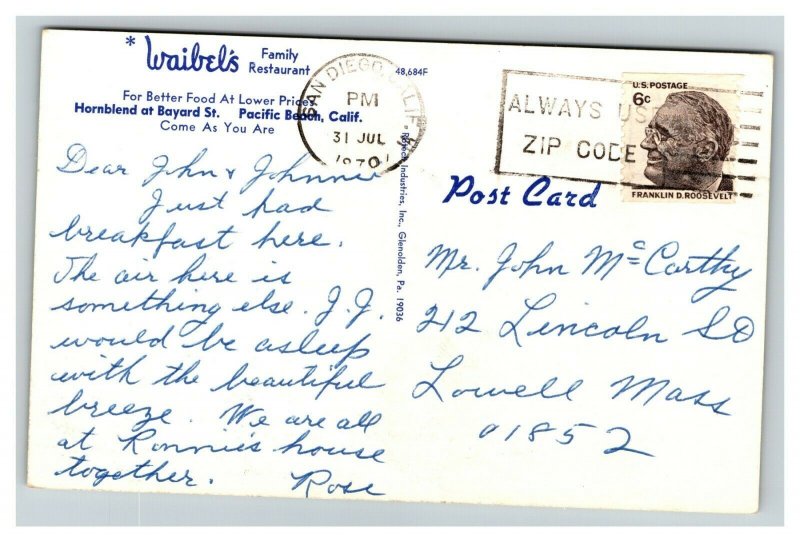 * Waibel's Family Restaurant
For Better Food At Lower Prices
Hornblend at Bayard St. Pacific Beach, Calif.
Come As You Are
48,684F
SAN DIEGO, CALIF
PM
31 JUL
1970
ALWAYS US
ZIP CODE
U.S. POSTAGE
6c
FRANKLIN D. ROOSEVELT
Post Card
Industries, Inc., Glenolden, Pa. 19036
Dear John & Johnnie
Just had
breakfast here.
The air here is
something else. J.J.
would be asleep
with the beautiful
breeze. We are all
at Ronnie's house
together. Rose
Mr. John McCarthy
212 Lincoln St
Lowell Mass
01852